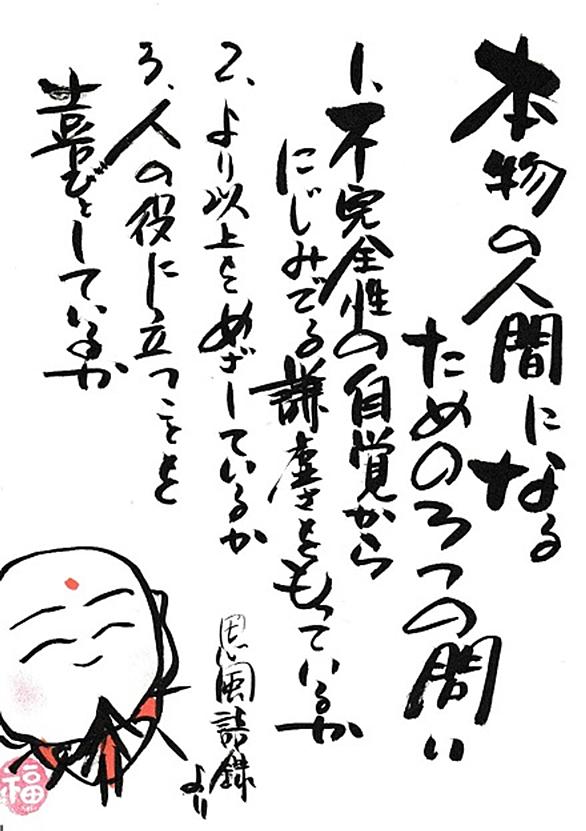 本物の人間になる
ための3つの問い
1、不完全性の自覚から
にじみでる謙虚さをもっているか
2、より以上をめざしているか
3、人の役に立つことを
喜びとしているか
思風語録
より
福